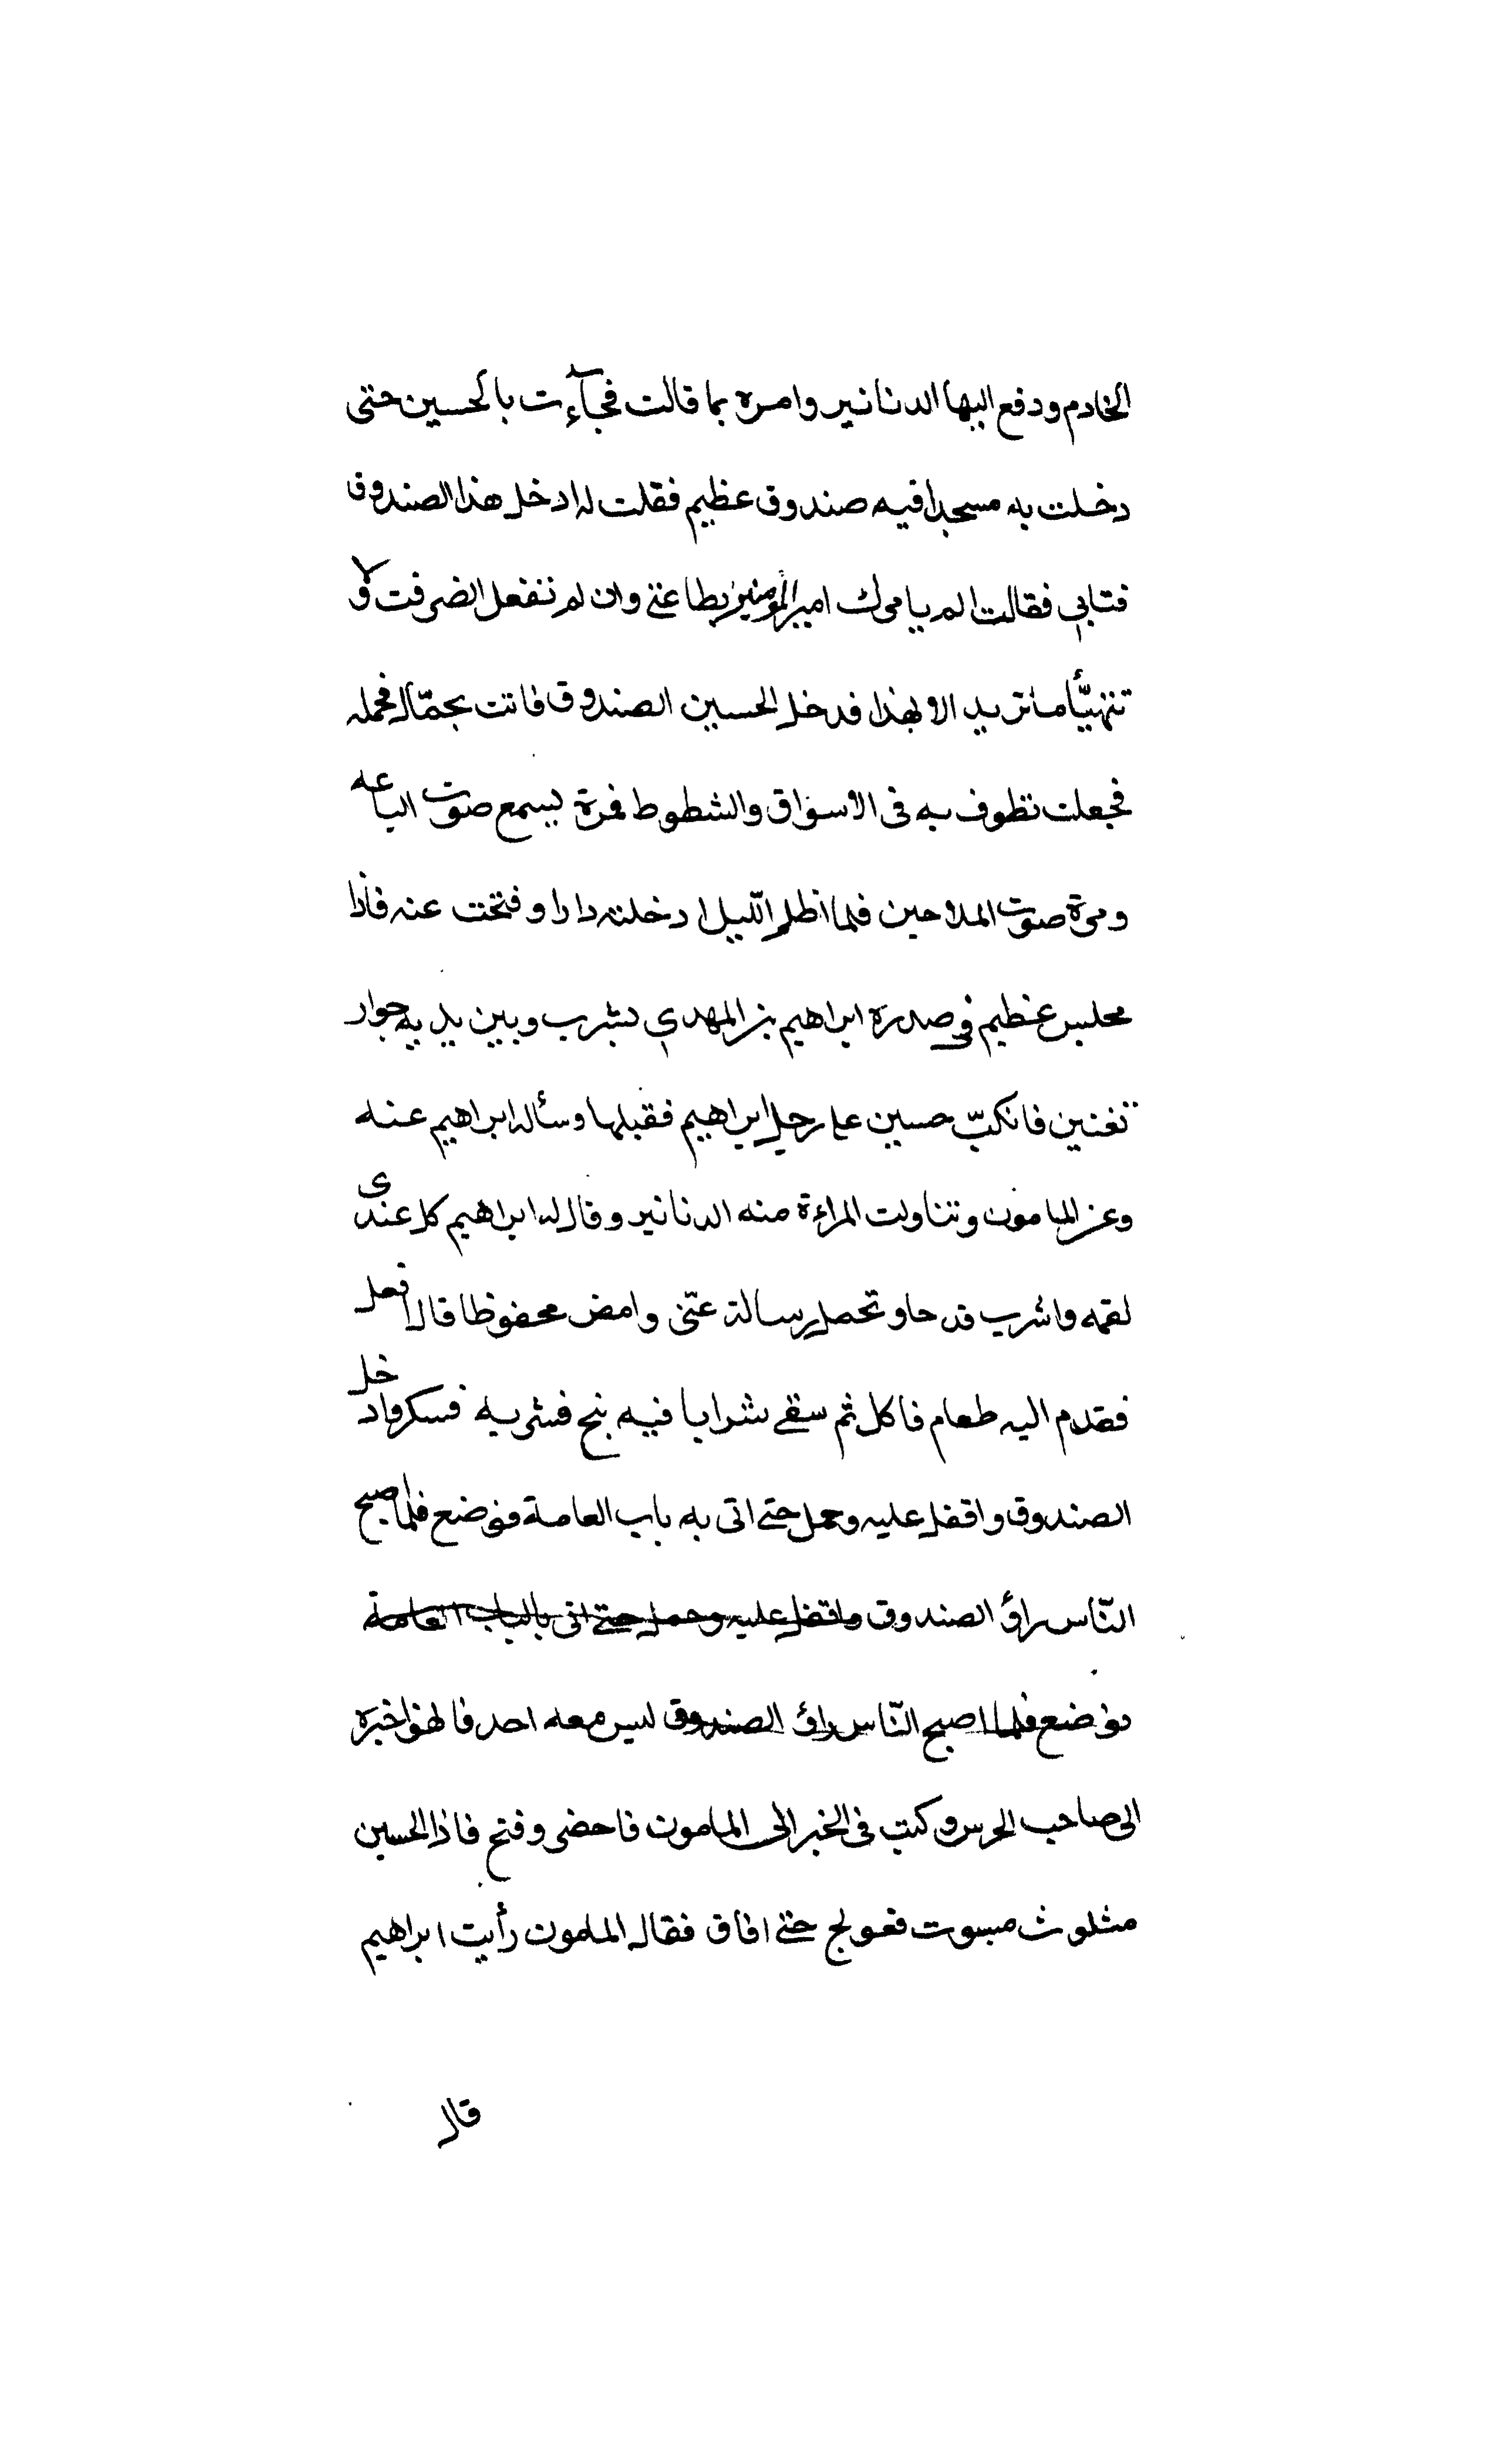 الخادم ودفع اليها الدنانير وامره بما قالت فجآءت بالحسين حتى
دخلت به مسجدا فيه صندوق عظيم فقلت له ادخل هذا الصندوق
فتابي فقالت الم يامرك امير المؤمنين بطاعتي وان لم تفعل انصرفت ولا
تتهيّأ ما تريد الا بهذا فدخل الحسين الصندوق فاتت بحمّال فحمله
فجعلت تطوف به في الاسواق والشطوط فمرة يسمع صوت الباعه
ومرة صوت الملاحين فلما اظلم اللّيل ادخلته دارا وفتحت عنه فاذا
مجلس عظيم في صدره ابراهيم بن المهدي يشرب وبين يديه جوار
تغنين فانكبّ حسين على رجل ابراهيم فقبلها وسأله ابراهيم عنه
وعن المامون وتناولت المراءة منه الدنانير وقال له ابراهيم كل عندى
لقمه واشرب قدحا وتحصل رسالة عنّى وامض محفوظا قال افعل
فقدم اليه طعام فاكل ثم سقي شرابا فيه بنج فشربه فسكر وادخل
الصندوق واقفل عليه وحمل حتى اتى به باب العامة فوضع فلما اصبح
النّاس راؤ الصندوق واقفل عليه وحمل حتى اتى بالباب العامة
فوضع فلما اصبح النّاس راؤ الصندوق ليس معه احد فانهوا خبره
الى صاحب الحرس وكتب في الخبر الى المامون فاحضر وفتح فاذا الحسين
مثلوث مبسوت فعولج حتى افاق فقال المامون رأيت ابراهيم
قال